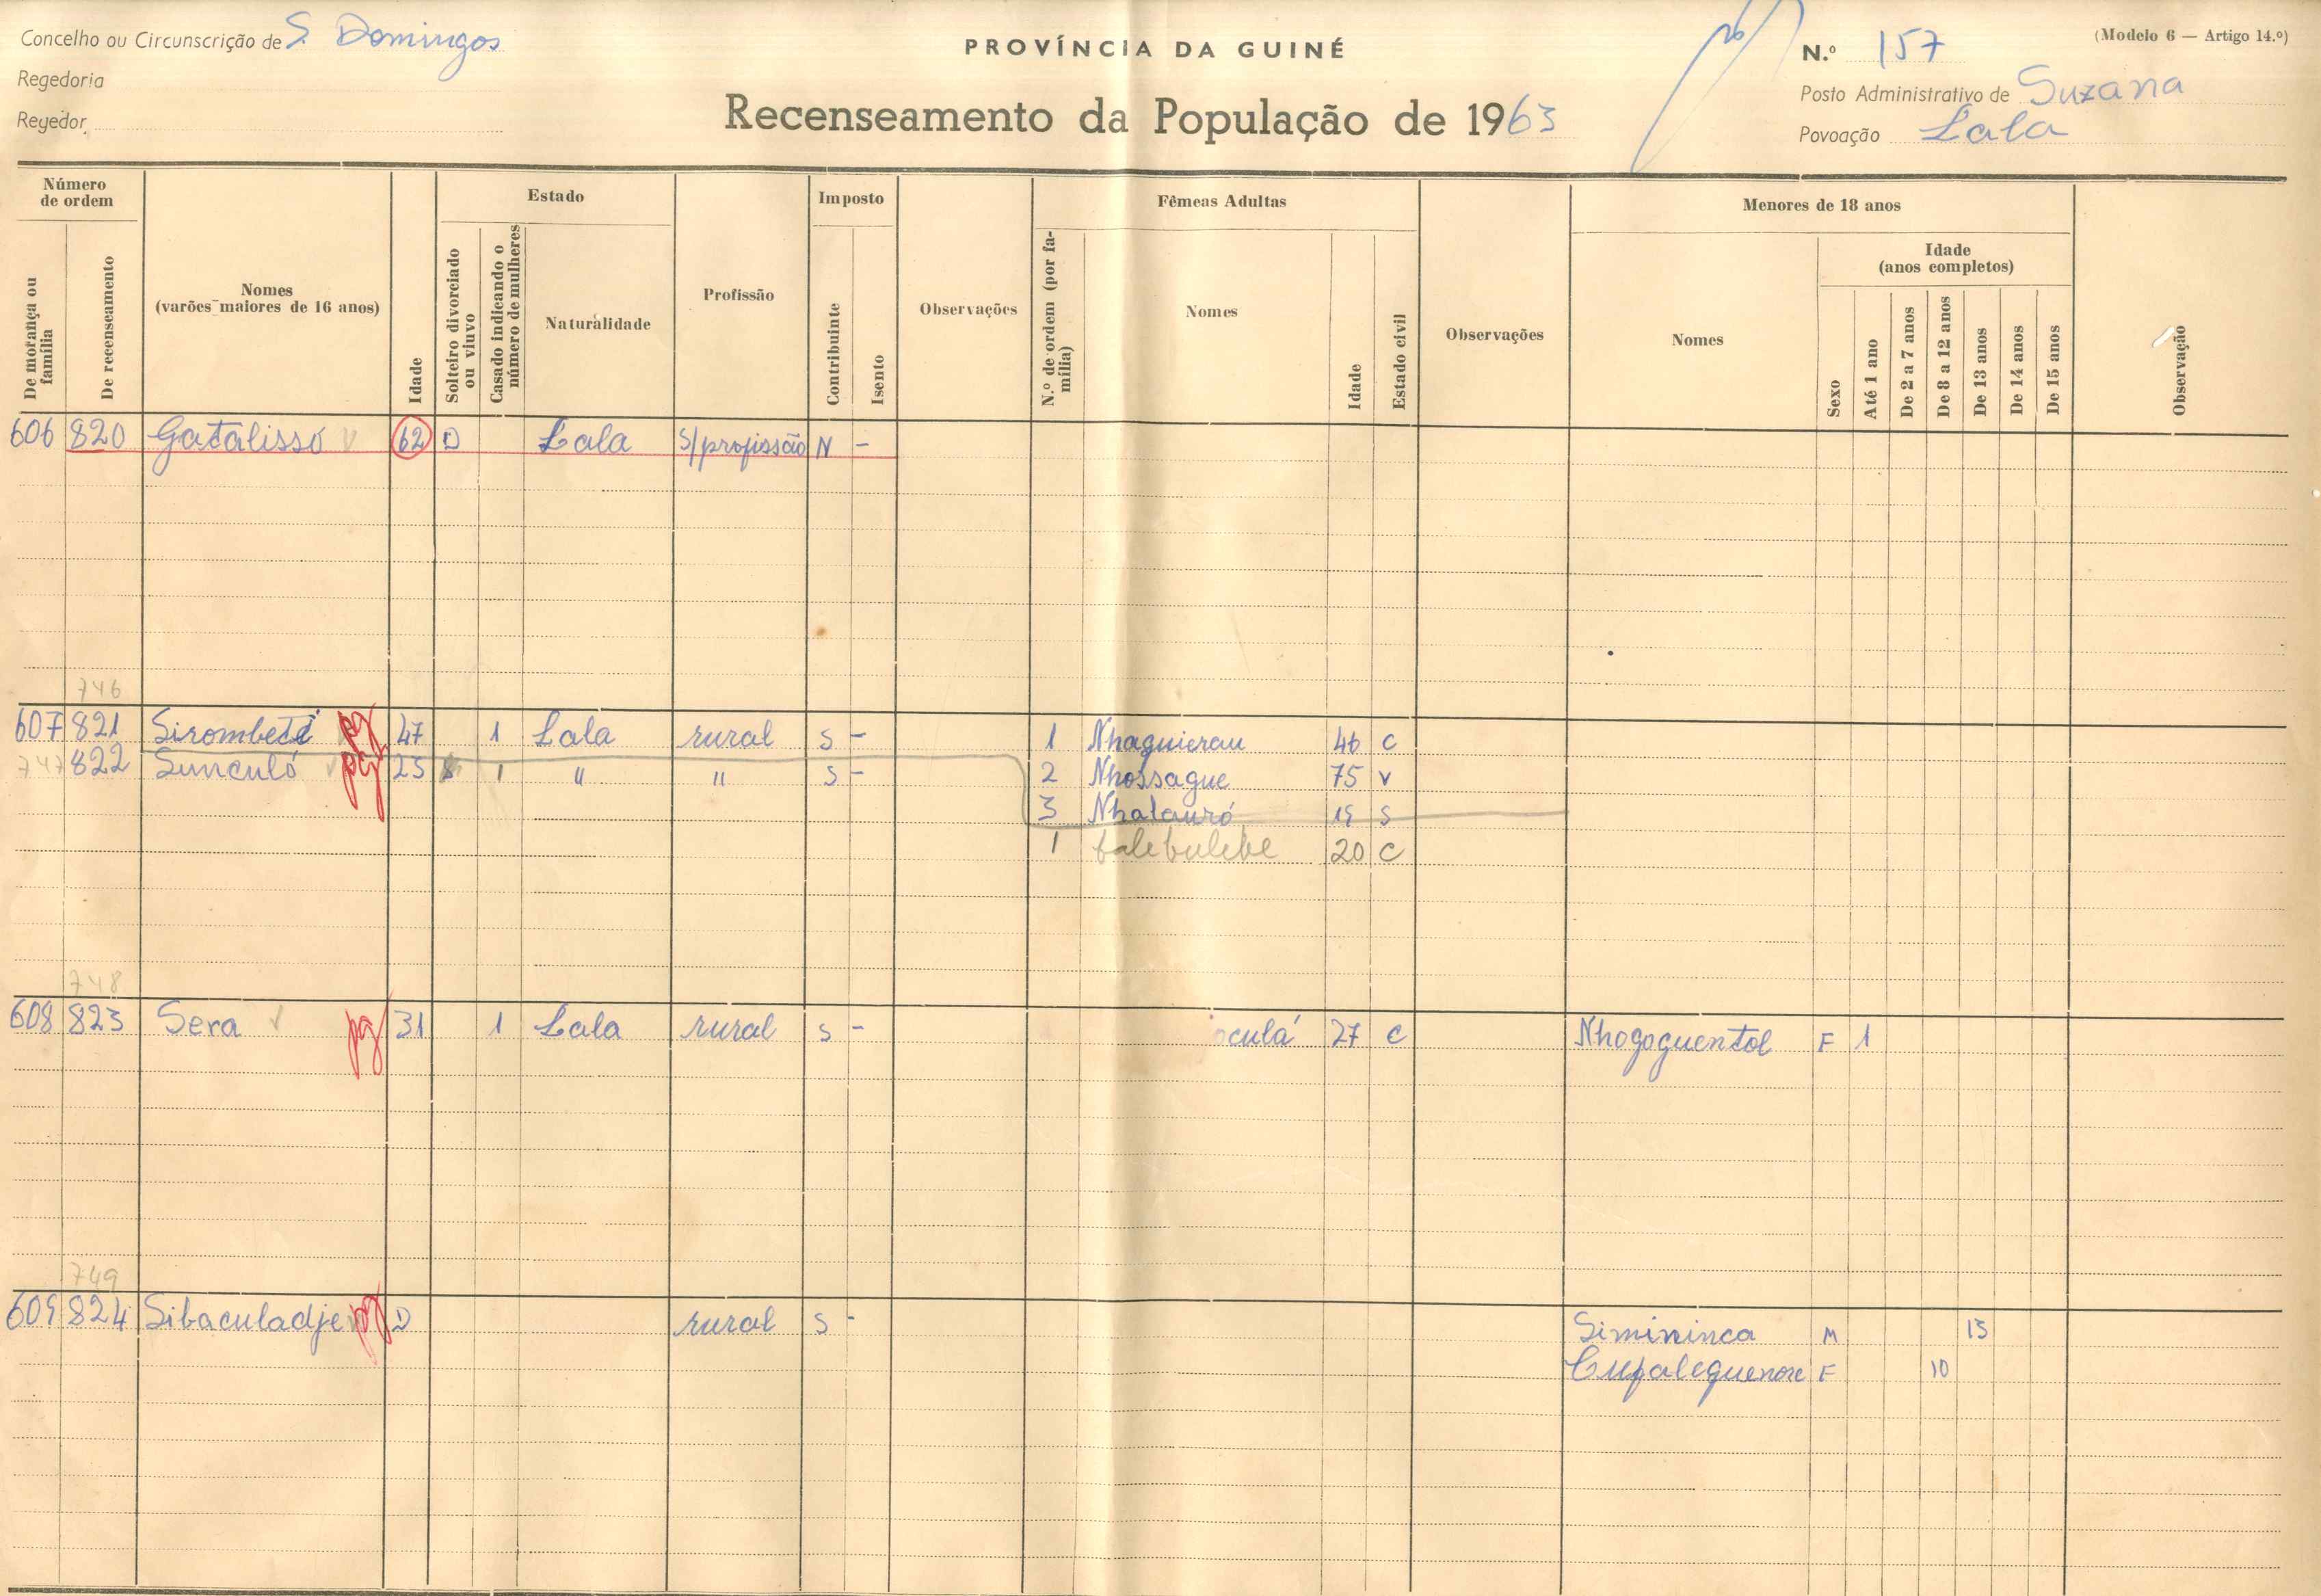 Concelho ou Circunscrição de S. Domingos
Regedoria
Regedor
PROVÍNCIA DA GUINÉ
Recenseamento da População de 1963
(Modelo 6 — Artigo 14.º)
N.º 157
Posto Administrativo de Suzana
Povoação Lala
Número de ordem
De morança ou família
De recenseamento
Nomes
(varões maiores de 16 anos)
Idade
Estado
Solteiro divorciado ou viuvo
Casado indicando o número de mulheres
Naturalidade
Profissão
Imposto
Contribuinte
Isento
Observações
Fêmeas Adultas
N.º de ordem (por família)
Nomes
Idade
Estado civil
Observações
Menores de 18 anos
Nomes
Sexo
Idade
(anos completos)
Até 1 ano
De 2 a 7 anos
De 8 a 12 anos
De 13 anos
De 14 anos
De 15 anos
Observação
606 820 Gatalisso 62 D Lala S/profissão N -
746
607 821 Sirombeté pg 47 1 Lala rural S - 1 Nhaguierau 46 C
747 822 Sunculó pg 25 1 " " S - 2 Nhossague 75 V
3 Nhalauró 19 S
1 20 C
748
608 823 Sera pg 31 1 Lala rural S - culá 27 C Nhogoguentol F 1
749
609 824 Sibaculadje pg D rural S - Simininca M 13
Cupaleguenore F 10